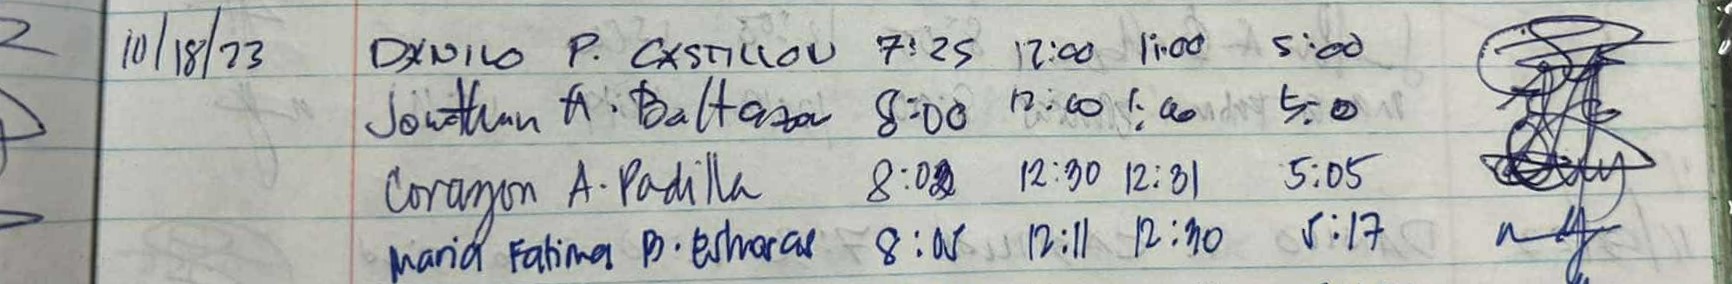 10/18/23 DANILO P. CASTILLON 7:25 12:00 1:00 5:00
Jonathan A. Baltazar 8:00 12:00 1:00 5:0
Corazon A. Padilla 8:02 12:30 12:31 5:05
Maria Fatima B. 8:05 12:11 12:30 5:17